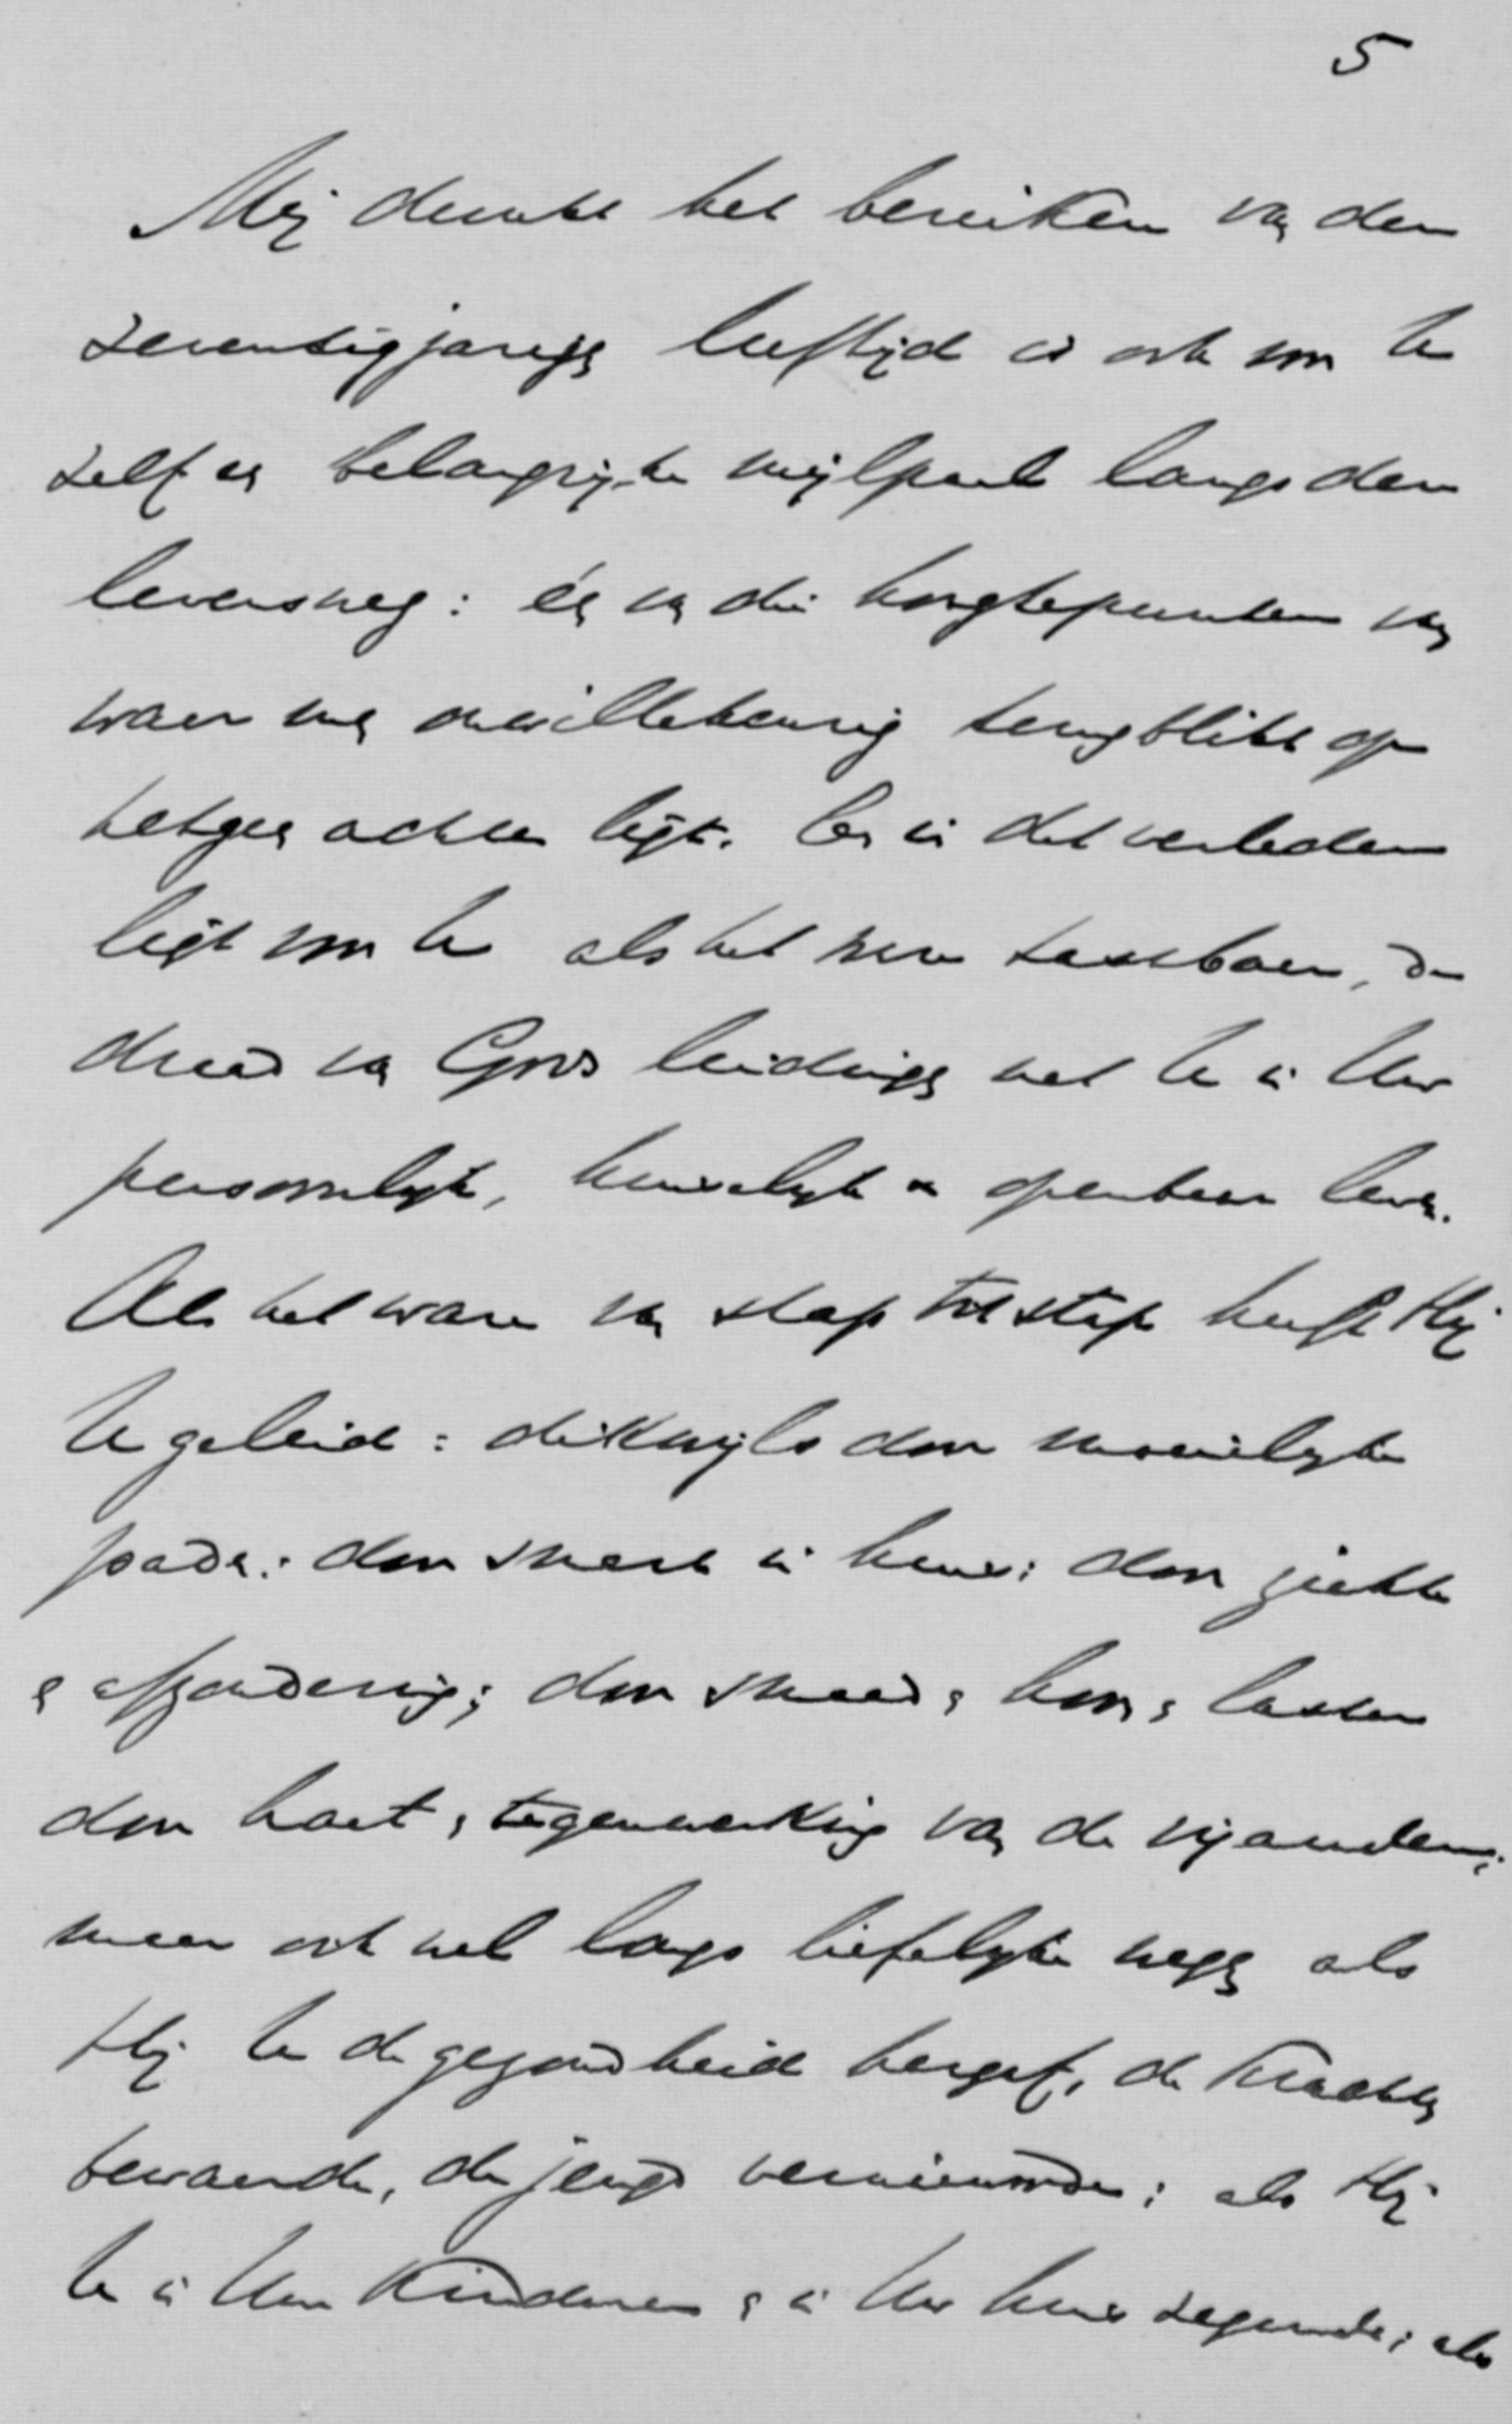 5
Mij dunkt het bereiken van den
zeventigjarigen leeftijd is ook voor U
zelf een belangrijke mijlpaal langs den
levensweg: één van die hoogtepunten van
waar men onwillekeurig terugblikt op
hetgeen achter ligt. En in dat verleden
ligt voor U als het ware tastbaar, de
draad van Gods leidingen met U in Uw
persoonlijk, huiselijk en openbaar leven.
Als het ware van stap tot stap heeft Hij
U geleid: dikwijls door moeielijke
paden: door smart in huis; door ziekte
en afzondering; door smaad en hoon en laster
door haat en tegenwerking van de vijanden;
maar ook wel langs liefelijke wegen als
Hij U de gezondheid hergaf, de krachten
bewaarde, de jeugd vernieuwde; als Hij
U in Uw kinderen en in Uw huis zegende; als